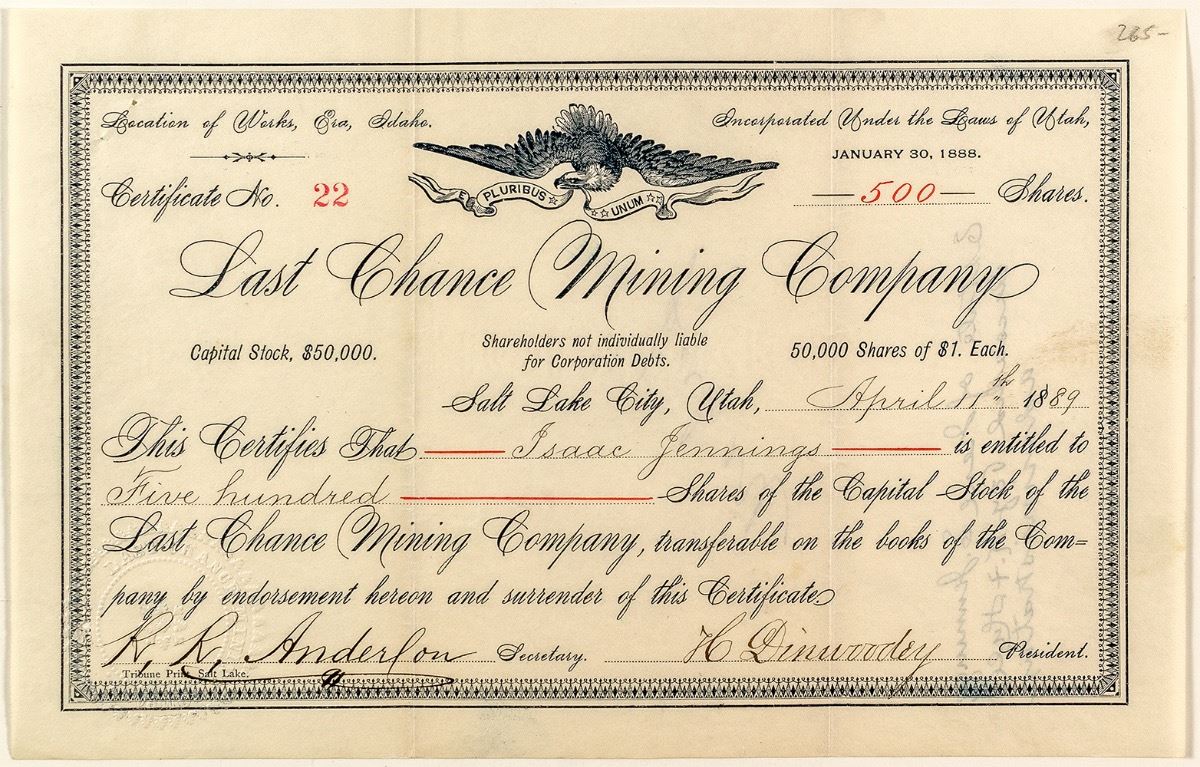 265-
Location of Works, Era, Idaho.
Incorporated Under the Laws of Utah,
JANUARY 30, 1888.
Certificate No. 22
PLURIBUS
UNUM
500 Shares.
Last Chance Mining Company
Capital Stock, $50,000.
Shareholders not individually liable
for Corporation Debts.
50,000 Shares of $1. Each.
Salt Lake City, Utah, April 11th 1889
This Certifies That Isaac Jennings is entitled to
Five hundred Shares of the Capital Stock of the
Last Chance Mining Company, transferable on the books of the Com=
pany by endorsement hereon and surrender of this Certificate
K. R. Anderson Secretary. H Dinwoodey President.
Tribune Print Salt Lake.